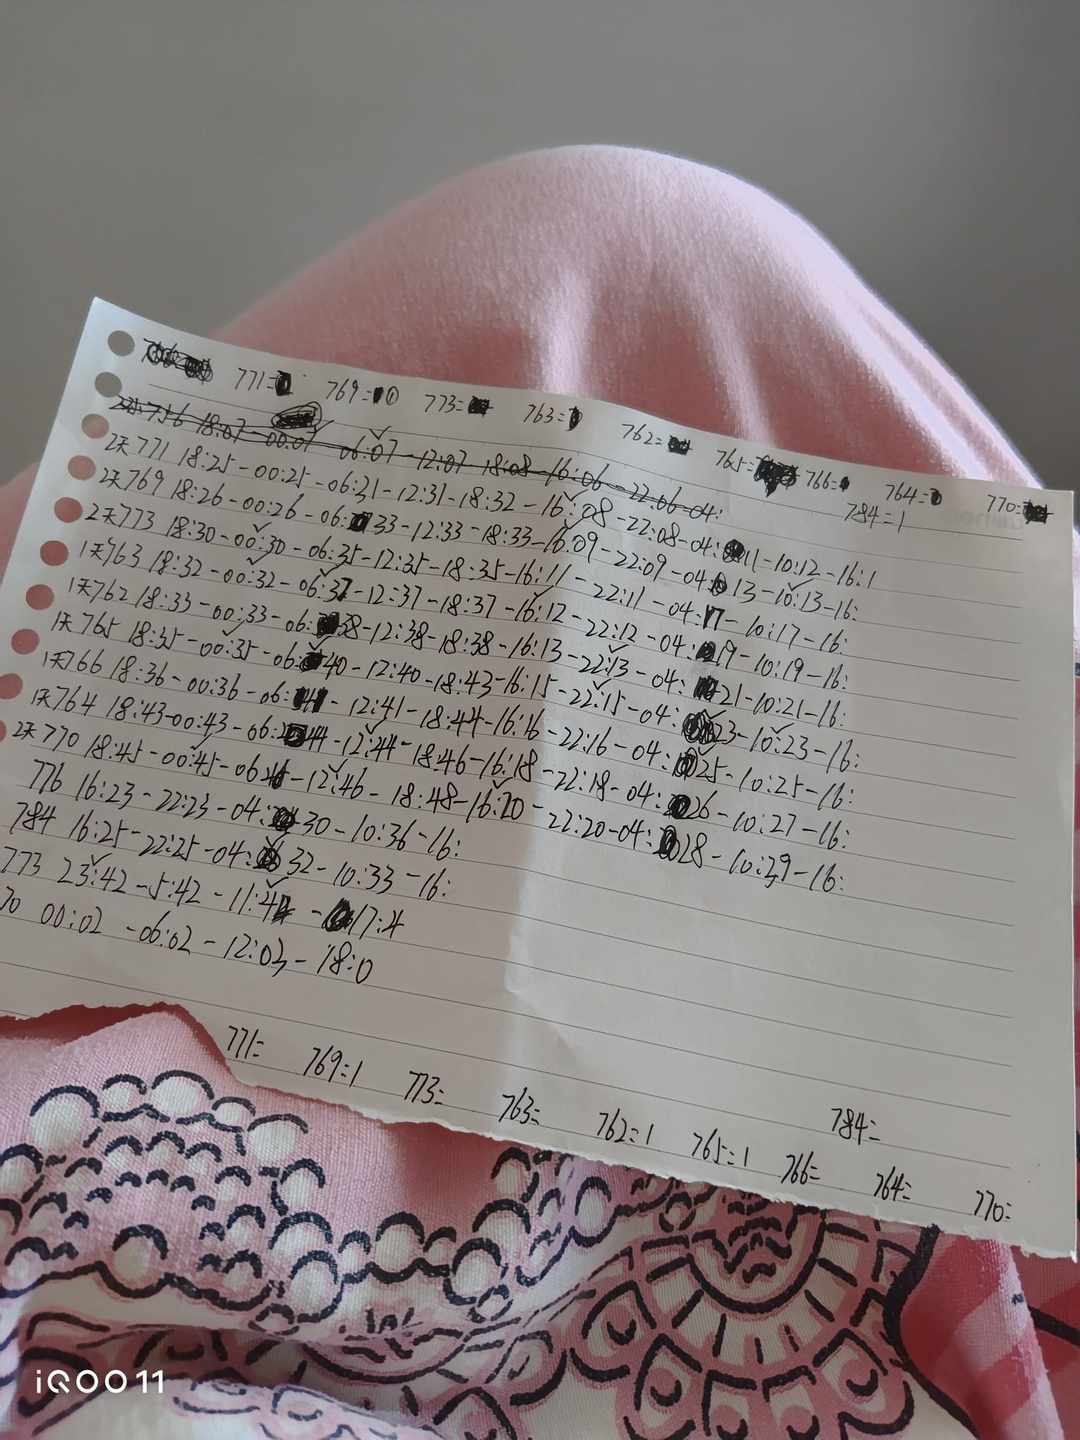 771= 769= 773= 763= 762= 765= 766= 764= 770=
784=1
2天756 18:07-00:07-06:07-12:07-18:08-16:06-22:06-04:
2天771 18:25-00:25-06:31-12:31-18:32-16:08-22:08-04:11-10:12-16:1
2天769 18:26-00:26-06:33-12:33-18:33-16:09-22:09-04:13-10:13-16:
2天773 18:30-00:30-06:35-12:35-18:35-16:11-22:11-04:17-10:17-16:
1天763 18:32-00:32-06:37-12:37-18:37-16:12-22:12-04:19-10:19-16:
1天762 18:33-00:33-06:38-12:38-18:38-16:13-22:13-04:21-10:21-16:
1天765 18:35-00:35-06:40-12:40-18:43-16:15-22:15-04:23-10:23-16:
1天766 18:36-00:36-06:41-12:41-18:44-16:16-22:16-04:25-10:25-16:
1天764 18:43-00:43-06:44-12:44-18:46-16:18-22:18-04:26-10:27-16:
2天770 18:45-00:45-06:46-12:46-18:48-16:20-22:20-04:28-10:29-16:
776 16:23-22:23-04:30-10:36-16:
784 16:25-22:25-04:32-10:33-16:
773 23:42-5:42-11:42-17:4
70 00:02-06:02-12:03-18:0
784=
771= 769=1 773= 763= 762=1 765=1 766= 764= 770=
iQOO 11